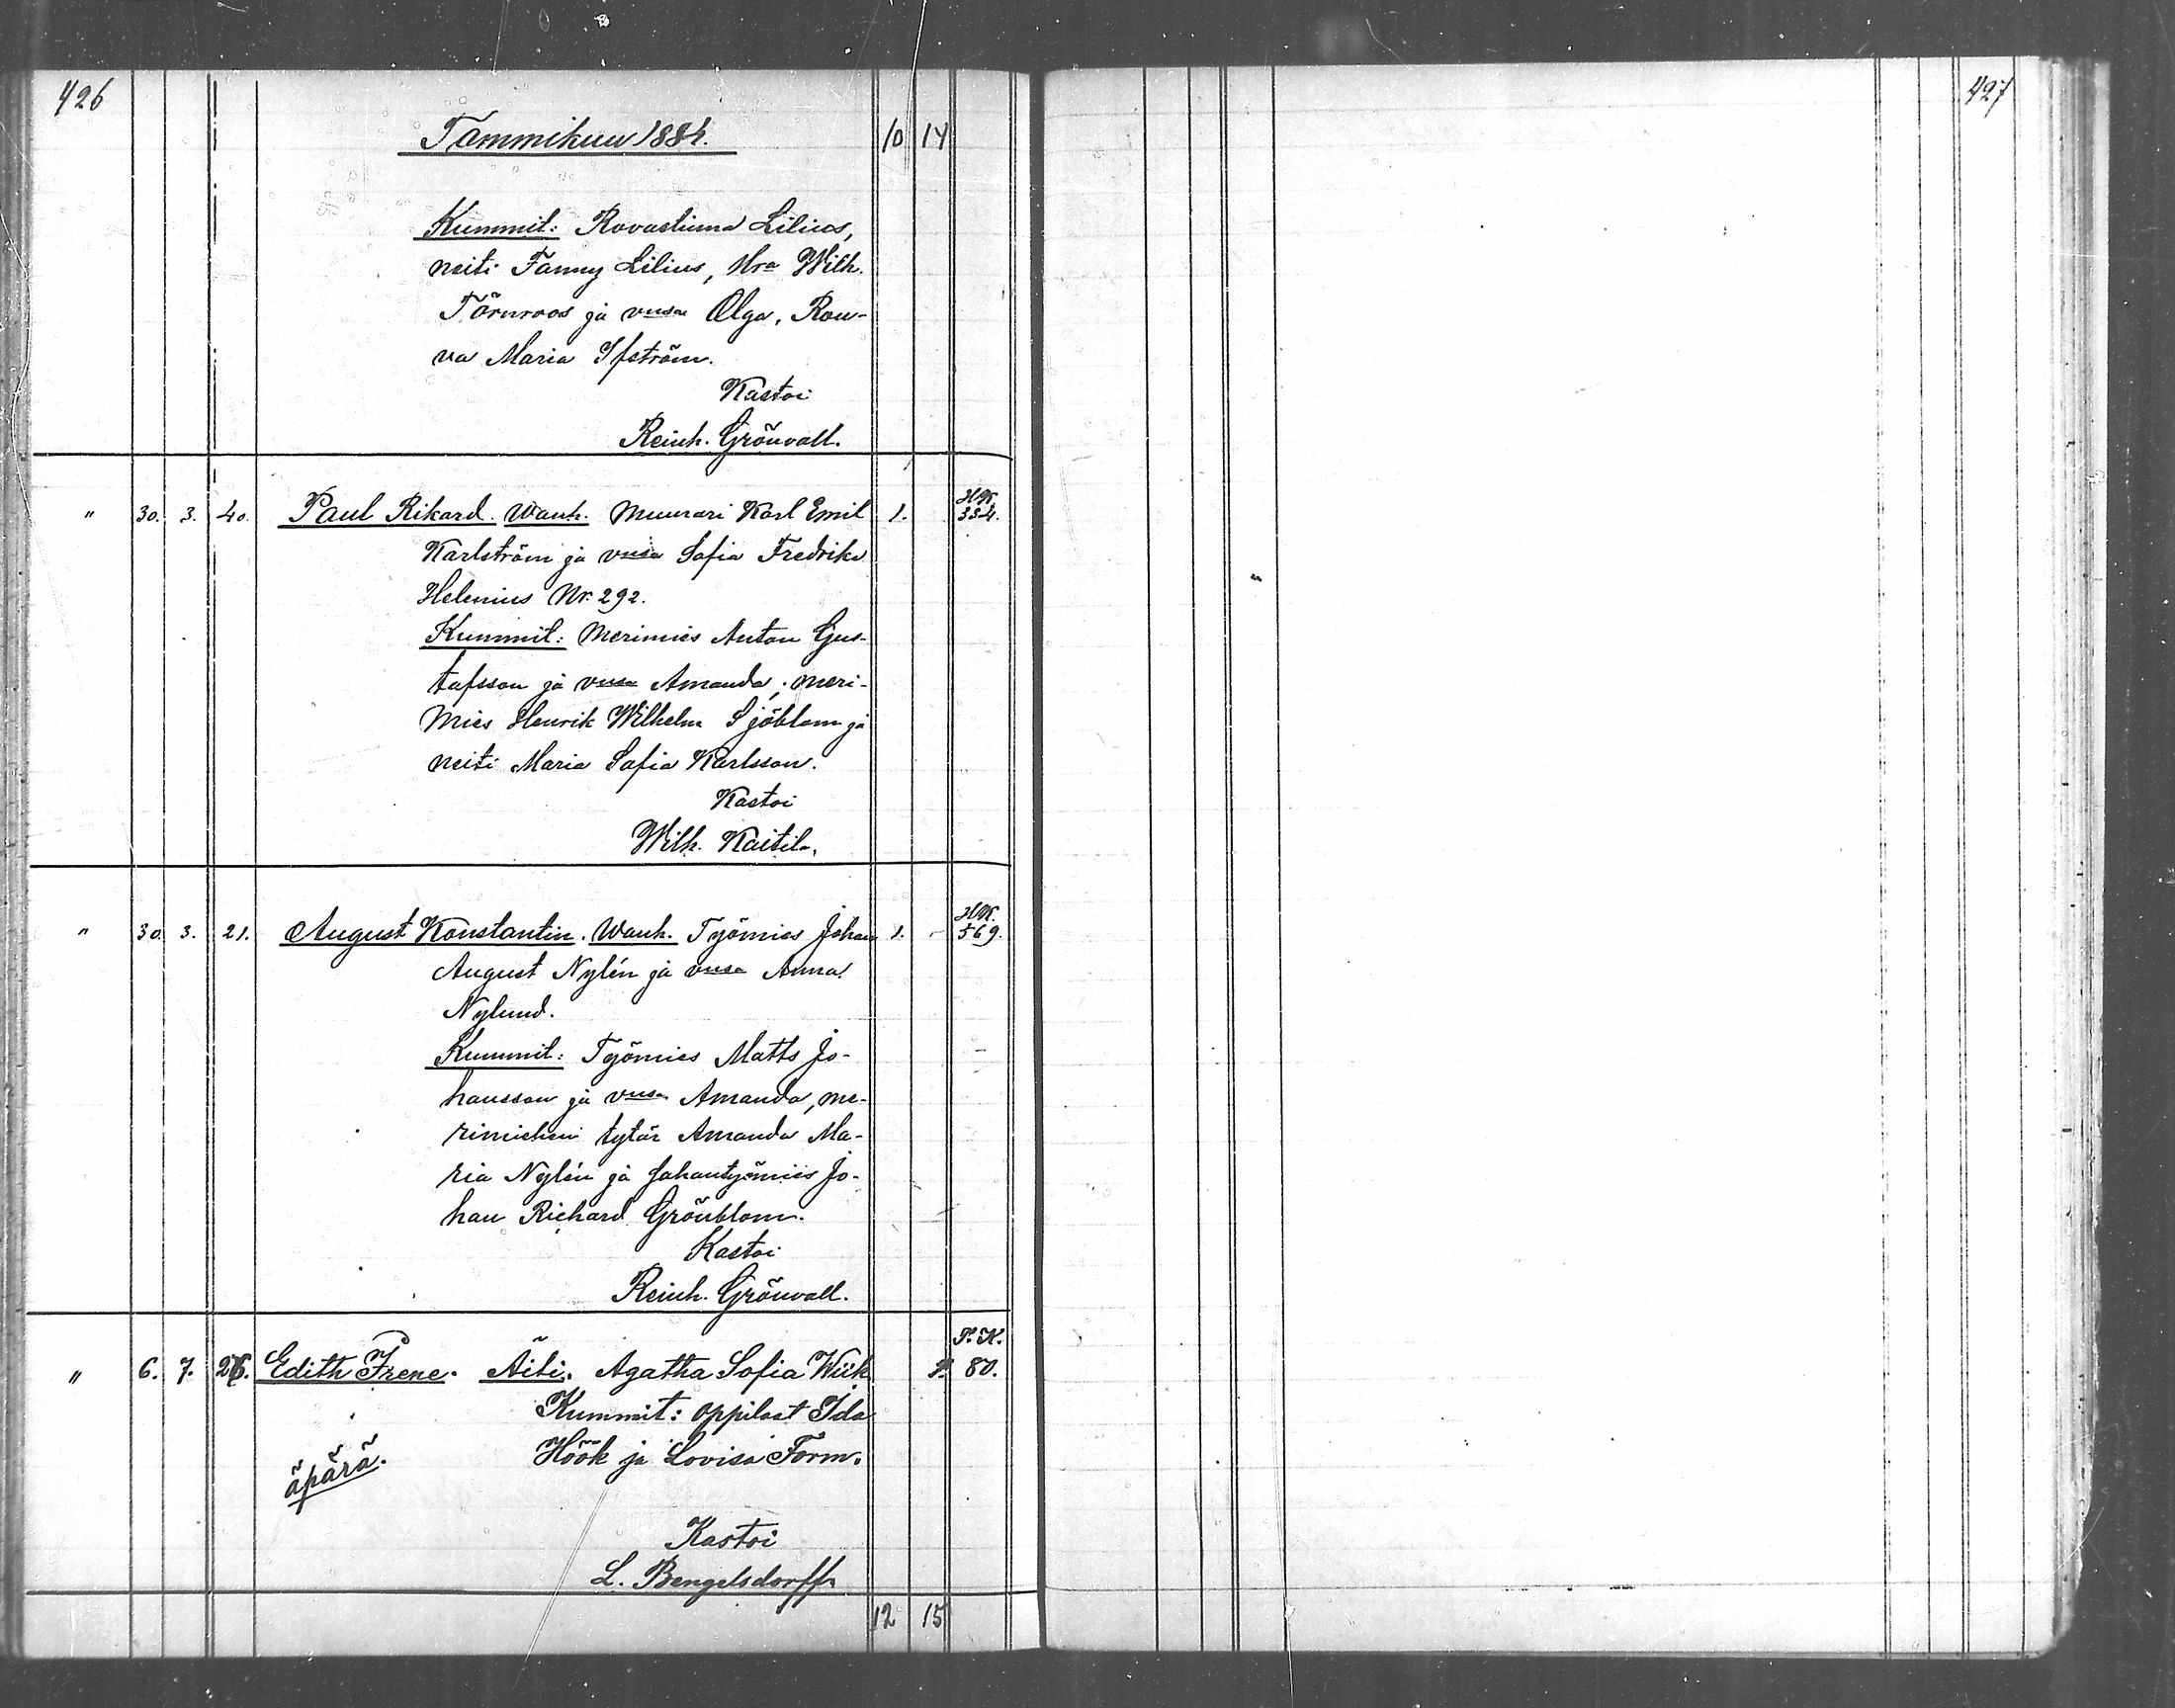 426
427
Tammikuu 1884. 10 14
Kummit: Rovastinna Lilius,
neiti Fanny Lilius, Hra Wilh.
Törnroos ja vmsa Olga, Rou-
va Maria Ifström.
Kastoi
Reinh. Grönvall.
H.K.
" 30. 3. 40. Paul Rikard. Wanh. Muurari Karl Emil 1. 334.
Karlström ja vmsa Sofia Fredrika
Helenius Nr. 292.
Kummit: Merimies Anton Gus-
tafsson ja vmsa Amanda; meri-
mies Henrik Wilhelm Sjöblom ja
neiti Maria Sofia Karlsson.
Kastoi
Wilh. Kaitila.
H.K.
" 30. 3. 21. August Konstantin. Wanh. Työmies Johan 1. - 569.
August Nylén ja vmsa Anna
Nylund.
Kummit: Työmies Matts Jo-
hansson ja vmsa Amanda, me-
rimiehen tytär Amanda Ma-
ria Nylén ja Sahantyömies Jo-
han Richard Grönblom.
Kastoi
Reinh. Grönvall.
P.K.
" 6. 7. 26. Edith Irene. Äiti. Agatha Sofia Wiik 1. 80.
Kummit: oppilaat Ida
Höök ja Lovisa Form.
äpärä.
Kastoi
L. Bengelsdorff
12 15